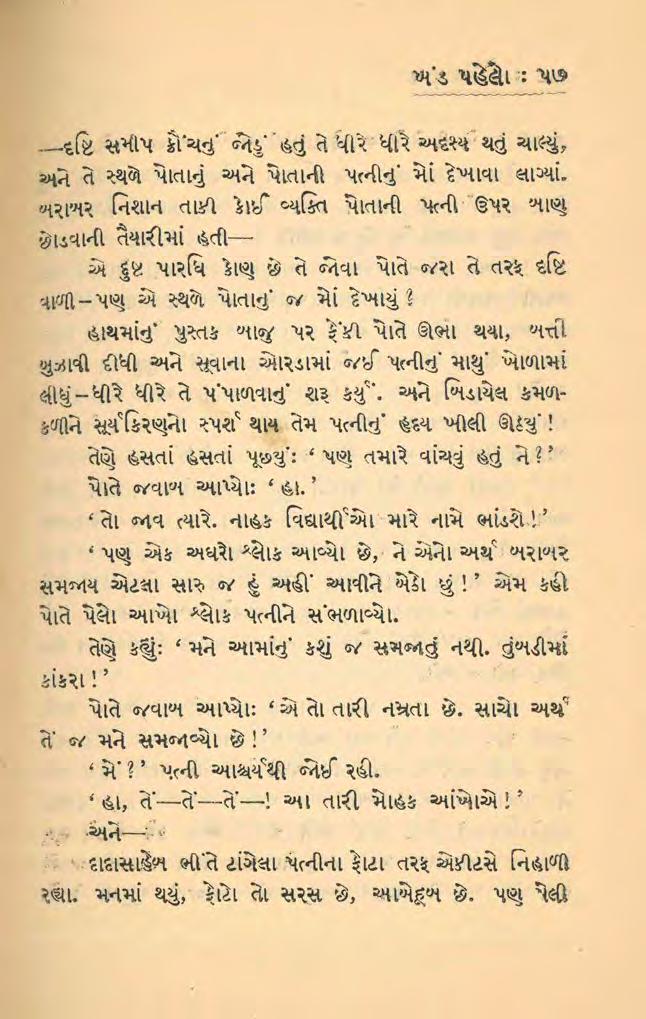 ખંડ પહેલો : ૫૭
—દૃષ્ટિ સમીપ ક્રૌંચનું જોડું હતું તે ધીરે ધીરે અદૃશ્ય થતું ચાલ્યું,
અને તે સ્થળે પોતાનું અને પોતાની પત્નીનું મોં દેખાવા લાગ્યાં.
બરાબર નિશાન તાકી કોઈ વ્યક્તિ પોતાની પત્ની ઉપર બાણ
છોડવાની તૈયારીમાં હતી—
એ દુષ્ટ પારધિ કોણ છે તે જોવા પોતે જરા તે તરફ દૃષ્ટિ
વાળી–પણ એ સ્થળે પોતાનું જ મોં દેખાયું ?
હાથમાંનું પુસ્તક બાજુ પર ફેંકી પોતે ઊભા થયા, બત્તી
બુઝાવી દીધી અને સૂવાના ઓરડામાં જઈ પત્નીનું માથું ખોળામાં
લીધું–ધીરે ધીરે તે પંપાળવાનું શરૂ કર્યું. અને બિડાયેલ કમળ-
કળીને સૂર્યકિરણનો સ્પર્શ થાય તેમ પત્નીનું હૃદય ખીલી ઊઠ્યું !
તેણે હસતાં હસતાં પૂછ્યું: ‘ પણ તમારે વાંચવું હતું ને ?’
પોતે જવાબ આપ્યો: ‘ હા.’
‘ તો જાવ ત્યારે. નાહક વિદ્યાર્થીઓ મારે નામે ભાંડશે !’
‘ પણ એક અઘરો શ્લોક આવ્યો છે, ને એનો અર્થ બરાબર
સમજાય એટલા સારુ જ હું અહીં આવીને બેઠો છું !’ એમ કહી
પોતે પેલો આખો શ્લોક પત્નીને સંભળાવ્યો.
તેણે કહ્યું: ‘ મને આમાંનું કશું જ સમજાતું નથી. તુંબડીમાં
કાંકરા !’
પોતે જવાબ આપ્યો: ‘ એ તો તારી નમ્રતા છે. સાચો અર્થ
તેં જ મને સમજાવ્યો છે !’
‘ મેં ?’ પત્ની આશ્ચર્યથી જોઈ રહી.
‘ હા, તેં—તેં—તેં—! આ તારી મોહક આંખોએ !’
અને—
દાદાસાહેબ ભીંતે ટાંગેલા પત્નીના ફોટા તરફ એકીટસે નિહાળી
રહ્યા. મનમાં થયું, ફોટો તો સરસ છે, આબેહૂબ છે. પણ પેલી